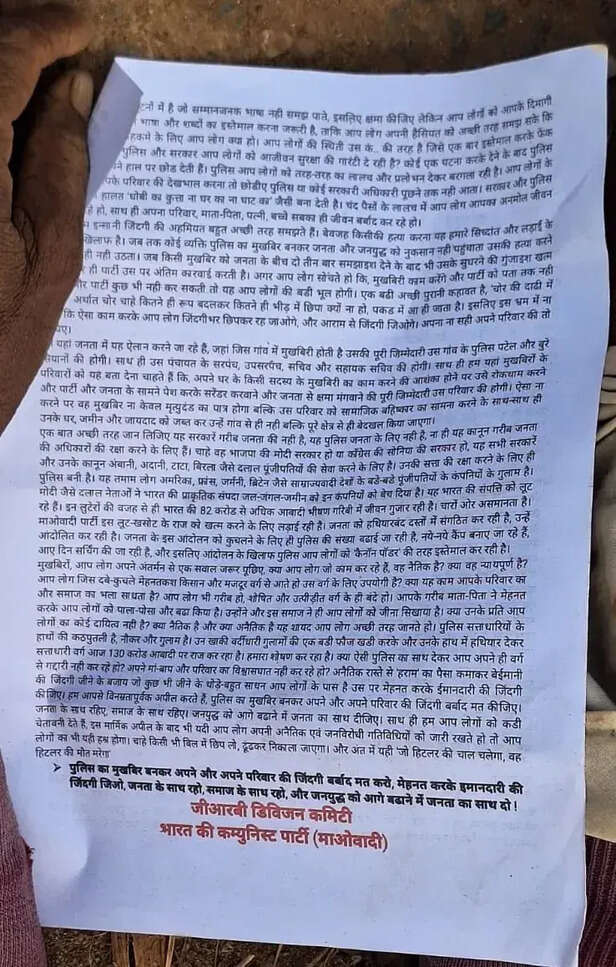 में है जो सम्मानजनक भाषा नही समझ पाते, इसलिए क्षमा कीजिए लेकिन आप लोगों को आपके दिमागी
भाषा और शब्दों का इस्तेमाल करना जरूरी है, ताकि आप लोग अपनी हैसियत को अच्छी तरह समझ सके कि
के लिए आप लोग क्या हो। आप लोगों की स्थिति उस कं.. की तरह है जिसे एक बार इस्तेमाल करके फेक
पुलिस और सरकार आप लोगों को आजीवन सुरक्षा की गारंटी दे रही है? कोई एक घटना करके देने के बाद पुलिस
हाल पर छोड देती हैं। पुलिस आप लोगों को तरह-तरह का लालच और प्रलोभन देकर बरगला रही है। आप लोगों के
परिवार की देखभाल करना तो छोडीए पुलिस या कोई सरकारी अधिकारी पूछने तक नही आता। सरकार और पुलिस
हालत 'धोबी का कुत्ता ना घर का ना घाट का' जैसी बना देती है। चंद पैसों के लालच में आप लोग आपका अनमोल जीवन
हो, साथ ही अपना परिवार, माता-पिता, पत्नी, बच्चे सबका ही जीवन बर्बाद कर रहे हो।
इन्सानी जिंदगी की अहमियत बहुत अच्छी तरह समझते हैं। बेवजह किसीकी हत्या करना यह हमारे सिध्दांत और लड़ाई के
खिलाफ है। जब तक कोई व्यक्ति पुलिस का मुखबिर बनकर जनता और जनयुद्ध को नुकसान नही पहुंचाता उसकी हत्या करने
ही नही उठता। जब किसी मुखबिर को जनता के बीच दो तीन बार समझाइश देने के बाद भी उसके सुधरने की गुंजाइश खत्म
ही पार्टी उस पर अंतिम कारवाई करती है। अगर आप लोग सोचते हो कि, मुखबिरी काम करेंगे और पार्टी को पता तक नही
पार्टी कुछ भी नही कर सकती तो यह आप लोगों की बडी भूल होगी। एक बढी अच्छी पुरानी कहावत है, 'चोर की दाढी में
अर्थात चोर चाहे कितने ही रूप बदलकर कितने ही भीड़ में छिपा क्यों ना हो, पकड में आ ही जाता है। इसलिए इस भ्रम में ना
कि ऐसा काम करके आप लोग जिंदगीभर छिपकर रह जाओगे, और आराम से जिंदगी जिओगे। अपना ना सही अपने परिवार की तो
यहां जनता में यह ऐलान करने जा रहे हैं, जहां जिस गांव में मुखबिरी होती है उसकी पूरी जिम्मेदारी उस गांव के पुलिस पटेल और बुरे
की होगी। साथ ही उस पंचायत के सरपंच, उपसरपंच, सचिव और सहायक सचिव की होगी। साथ ही हम यहां मुखबिरों के
परिवारों को यह बता देना चाहते हैं कि, अपने घर के किसी सदस्य के मुखबिरी का काम करने की आशंका होने पर उसे रोकथाम करने
और पार्टी और जनता के सामने पेश करके सरेंडर करवाने और जनता से क्षमा मंगवाने की पूरी जिम्मेदारी उस परिवार की होगी। ऐसा ना
करने पर वह मुखबिर ना केवल मृत्युदंड का पात्र होगा बल्कि उस परिवार को सामाजिक बहिष्कार का सामना करने के साथ-साथ ही
उनके घर, जमीन और जायदाद को जब्त कर उन्हें गांव से ही नही बल्कि पूरे क्षेत्र से ही बेदखल किया जाएगा।
एक बात अच्छी तरह जान लिजिए यह सरकारें गरीब जनता की नही है, यह पुलिस जनता के लिए नही है, ना ही यह कानून गरीब जनता
की अधिकारों की रक्षा करने के लिए हैं। चाहे वह भाजपा की मोदी सरकार हो या काँग्रेस की सोनिया की सरकार हो, यह सभी सरकारें
और उनके कानून अंबानी, अदानी, टाटा, बिरला जैसे दलाल पूंजीपतियों की सेवा करने के लिए है। उनकी सत्ता की रक्षा करने के लिए ही
पुलिस बनी है। यह तमाम लोग अमरिका, फ्रांस, जर्मनी, ब्रिटेन जैसे साम्राज्यवादी देशों के बडे-बडे पूंजीपतियों के कंपनियों के गुलाम है।
मोदी जैसे दलाल नेताओं ने भारत की प्राकृतिक संपदा जल-जंगल-जमीन को इन कंपनियों को बेच दिया है। यह भारत की संपत्ति को लूट
रहे हैं। इन लुटेरों की वजह से ही भारत की 82 करोड से अधिक आबादी भीषण गरिबी में जीवन गुजार रही है। चारों ओर असमानता है।
माओवादी पार्टी इस लूट-खसोट के राज को खत्म करने के लिए लड़ाई रही है। जनता को हथियारबंद दस्तों में संगठित कर रही है, उन्हें
आंदोलित कर रही है। जनता के इस आंदोलन को कुचलने के लिए ही पुलिस की संख्या बढाई जा रही है, नये-नये कैंप बनाए जा रहे हैं,
आए दिन सर्चिंग की जा रही है, और इसलिए आंदोलन के खिलाफ पुलिस आप लोगों को 'कैनॉन पॉडर' की तरह इस्तेमाल कर रही है।
मुखबिरों, आप लोग अपने अंतर्मन से एक सवाल जरूर पूछिए, क्या आप लोग जो काम कर रहे हैं, वह नैतिक है? क्या वह न्यायपूर्ण है?
आप लोग जिस दबे-कुचले मेहनतकश किसान और मजदूर वर्ग से आते हो उस वर्ग के लिए उपयोगी है? क्या यह काम आपके परिवार का
और समाज का भला साधता है? आप लोग भी गरीब हो, शोषित और उत्पीड़ीत वर्ग के ही बंदे हो। आपके गरीब माता-पिता ने मेहनत
करके आप लोगों को पाला-पोसा और बढा किया है। उन्होंने और इस समाज ने ही आप लोगों को जीना सिखाया है। क्या उनके प्रति आप
लोगों का कोई दायित्व नही है? क्या नैतिक है और क्या अनैतिक है यह शायद आप लोग अच्छी तरह जानते हो। पुलिस सत्ताधारियों के
हाथों की कठपुतली है, नौकर और गुलाम है। उन खाकी वर्दीधारी गुलामों की एक बडी फौज खडी करके और उनके हाथ में हथियार देकर
सत्ताधारी वर्ग आज 130 करोड आबादी पर राज कर रहा है। हमारा शोषण कर रहा है। क्या ऐसी पुलिस का साथ देकर आप अपने ही वर्ग
से गद्दारी नही कर रहे हो? अपने मां-बाप और परिवार का विश्वासघात नही कर रहे हो? अनैतिक रास्ते से 'हराम' का पैसा कमाकर बेईमानी
की जिंदगी जीने के बजाय जो कुछ भी जीने के थोड़े-बहुत साधन आप लोगों के पास है उस पर मेहनत करके ईमानदारी की जिंदगी
की जिए। हम आपसे विनम्रतापूर्वक अपील करते हैं, पुलिस का मुखबिर बनकर अपने और अपने परिवार की जिंदगी बर्बाद मत कीजिए।
जनता के साथ रहिए, समाज के साथ रहिए। जनयुद्ध को आगे बढाने में जनता का साथ दीजिए। साथ ही हम आप लोगों को कडी
चेतावनी देते हैं, इस मार्मिक अपील के बाद भी यदी आप लोग अपनी अनैतिक एवं जनविरोधी गतिविधियों को जारी रखते हो तो आप
लोगों का भी यही हश्र होगा। चाहे किसी भी बिल में छिप लो, ढूंढकर निकाला जाएगा। और अंत में यही 'जो हिटलर की चाल चलेगा, वह
हिटलर की मौत मरेगा'
➤ पुलिस का मुखबिर बनकर अपने और अपने परिवार की जिंदगी बर्बाद मत करो, मेहनत करके इमानदारी की
जिंदगी जिओ, जनता के साथ रहो, समाज के साथ रहो, और जनयुद्ध को आगे बढाने में जनता का साथ दो !
जीआरबी डिविजन कमिटी
भारत की कम्युनिस्ट पार्टी (माओवादी)